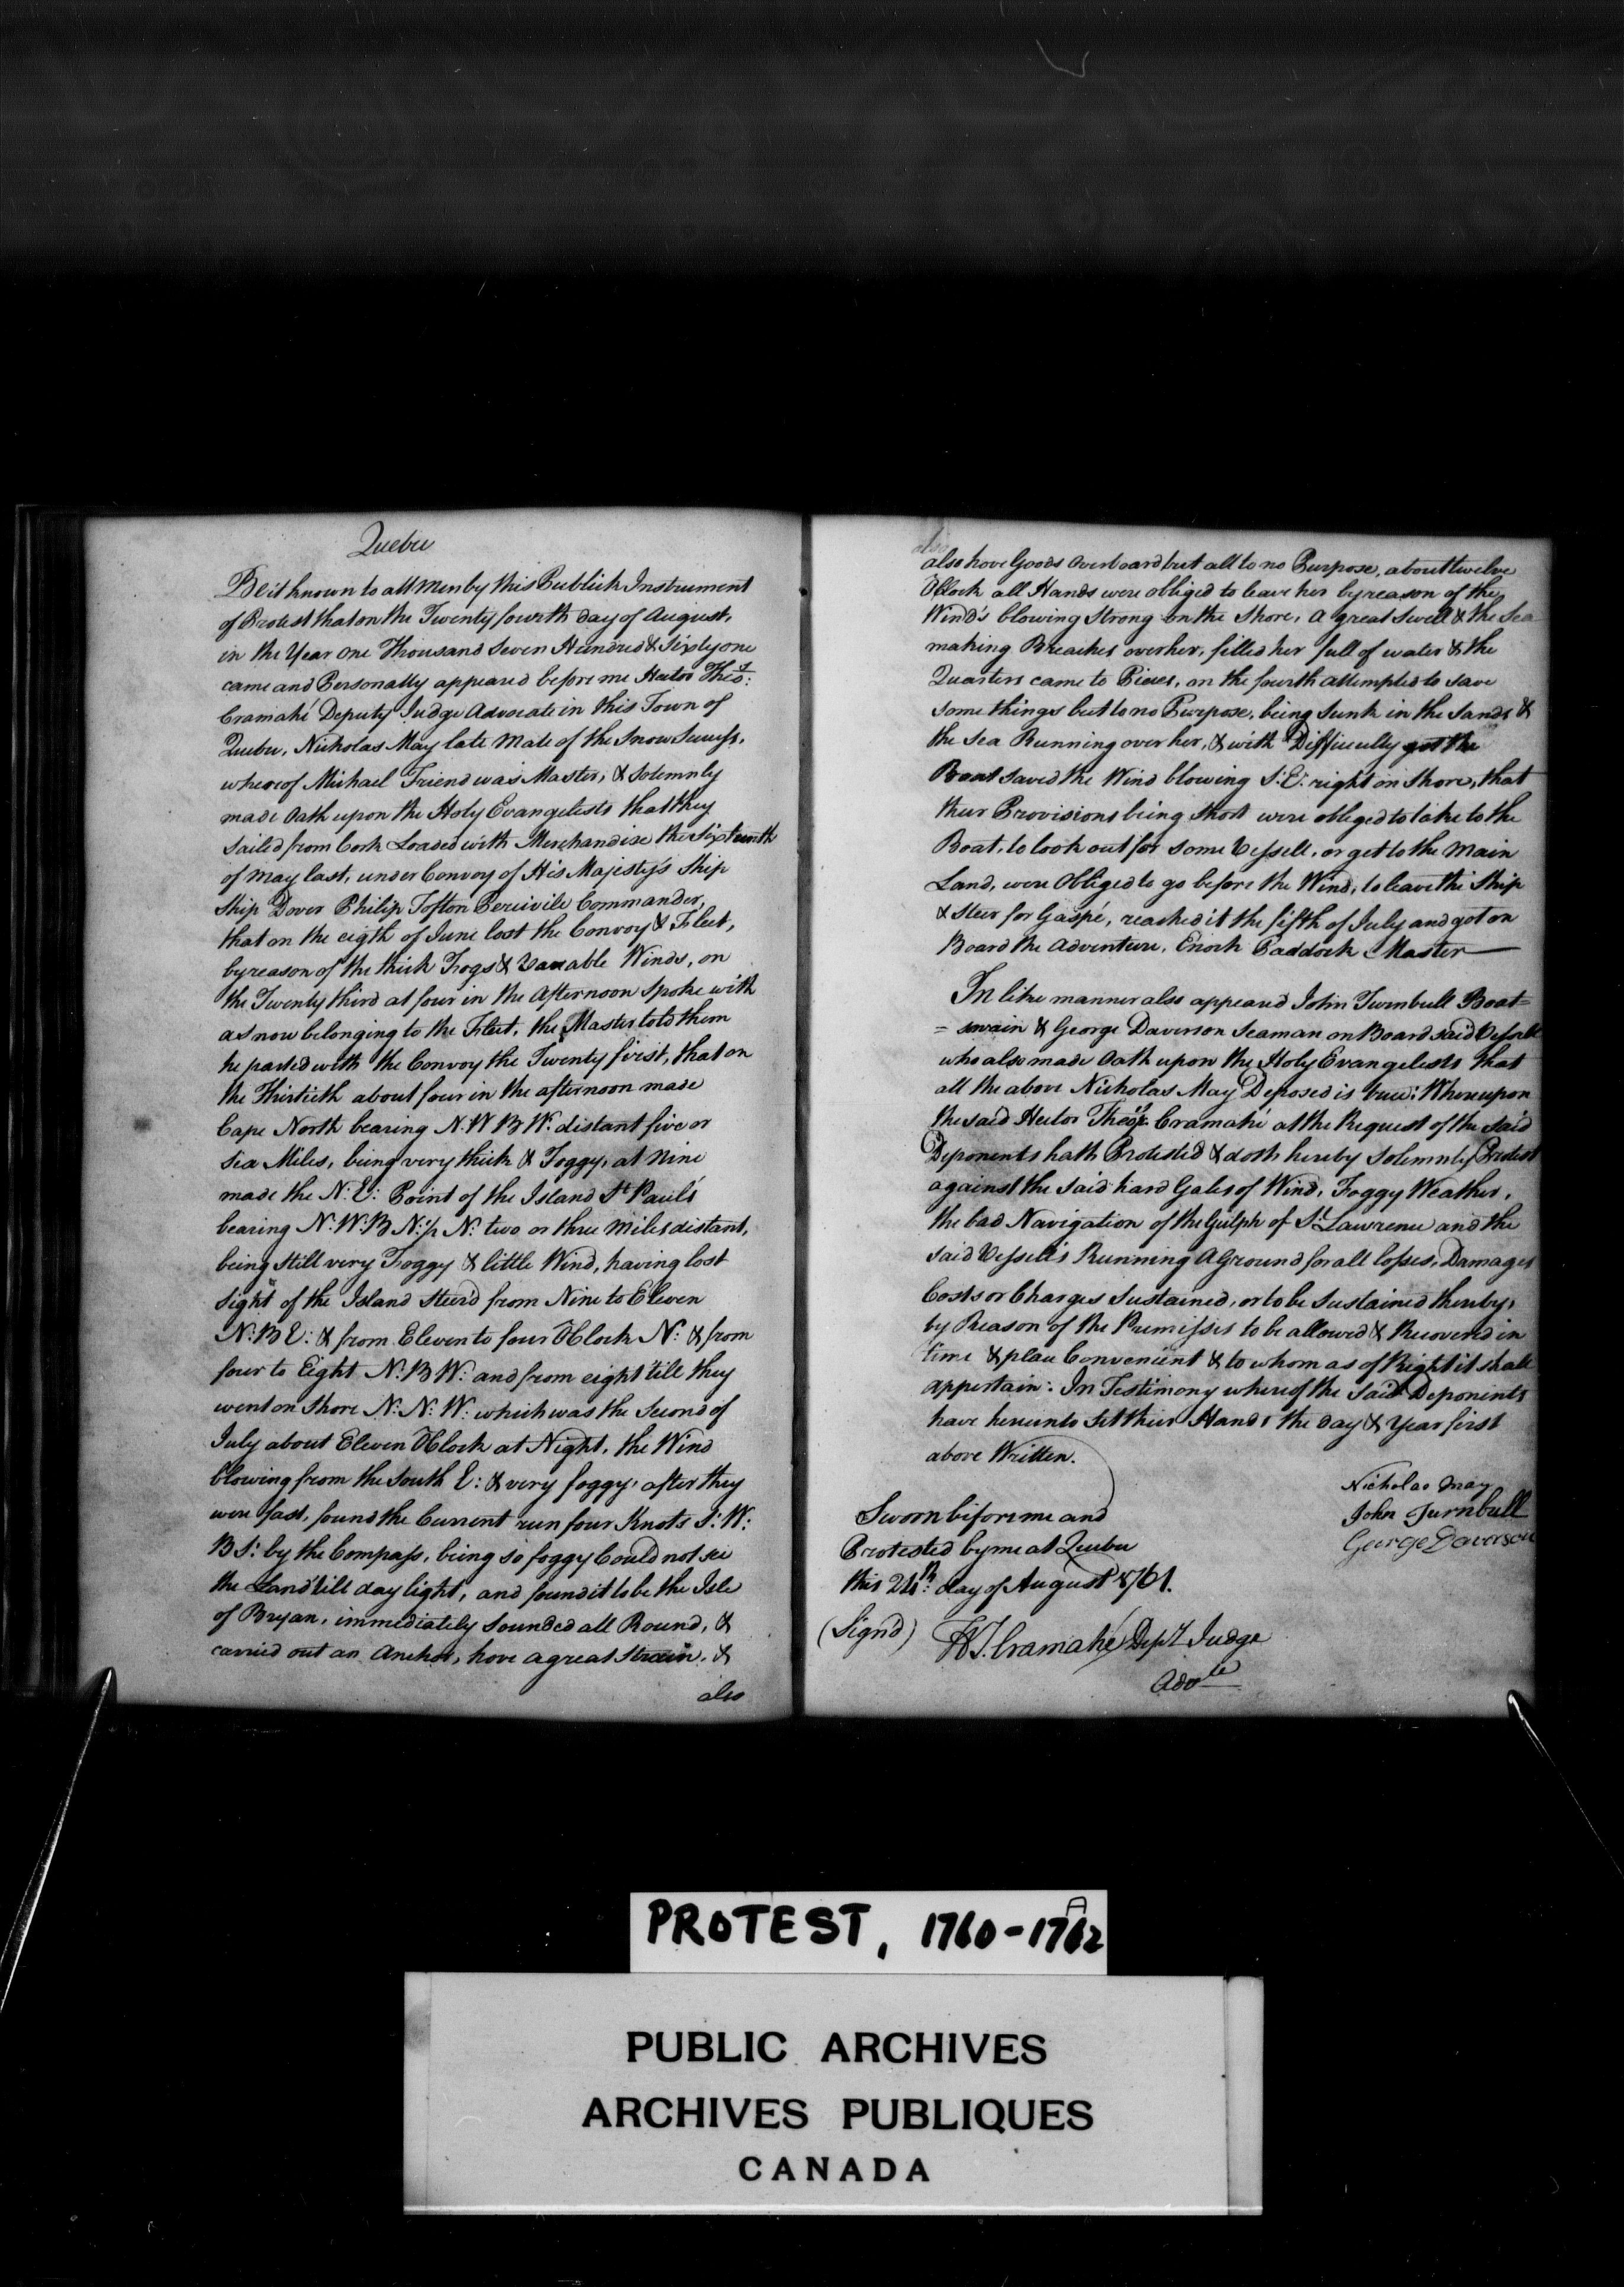 Quebec
Be it known to all Men by this Publick Instrument
of Protest that on the Twenty fourth day of August,
in the Year one Thousand Seven Hundred & Sixty one
came and Personally appeared before me Hector Theo:
Cramahé Deputy Judge Advocate in this Town of
Quebec, Nicholas May late Mate of the Snow Success,
whereof Michael Friend was Master, & Solemnly
made Oath upon the Holy Evangelists that they
Sailed from Cork Loaded with Merchandise the Sixteenth
of May last, under Convoy of His Majesty's Ship
Ship Dover Philip Tofton Percivile Commander,
that on the eigth of June lost the Convoy & Fleet,
by reason of the thick Fogs & Variable Winds, on
the Twenty third at four in the Afternoon Spoke with
a Snow belonging to the Fleet, the Master told them
he parted with the Convoy the Twenty first, that on
the Thirtieth about four in the afternoon made
Cape North bearing N. W B W. distant five or
Six Miles, being very thick & Foggy, at Nine
made the N: E: Point of the Island St. Paul's
bearing N: W: B N: ½ N: two or three Miles distant,
being Still very Foggy & little Wind, having lost
Sight of the Island Steer'd from Nine to Eleven
N: B E: & from Eleven to four OClock N: & from
four to Eight N: B W: and from eight till they
went on Shore N: N: W: which was the Second of
July about Eleven OClock at Night, the Wind
blowing from the South E: & very foggy, after they
were fast, found the Current run four Knots S: W:
B S: by the Compass, being so foggy Could not see
the Land till day light, and found it to be the Isle
of Bryan, immediately Sounded all Round, &
carried out an Anchor, hove a great Strain, &
also
also hove Goods Overboard but all to no Purpose, about twelve
OClock all Hands were obliged to leave her by reason of the
Wind's blowing Strong on the Shore, a great Swell & the Sea
making Breaches over her, filled her full of water & the
Quarters came to Pieces, on the fourth attempted to save
some things but to no Purpose, being Sunk in the Sands &
the Sea Running over her, & with Difficulty got the
Boat Saved the Wind blowing S: E: right on Shore, that
their Provisions being Short were obliged to take to the
Boat, to look out for some Vessell, or get to the Main
Land, were Obliged to go before the Wind, to leave the Ship
& Steer for Gaspé, reached it the fifth of July and got on
Board the Adventure, Enoch Paddock Master
In like manner also appeared John Turnbull Boat=
=swain & George Daverson Seaman on Board said Vessell
who also made Oath upon the Holy Evangelists that
all the above Nicholas May Deposed is true: Whereupon
the said Hector Theo: Cramahé at the Request of the Said
Deponents hath Protested & doth hereby Solemnly Protest
against the said hard Gales of Wind, Foggy Weather,
the bad Navigation of the Gulph of St. Lawrence and the
said Vessell's Running AGround for all losses, Damages
Costs or Charges Sustained, or to be Sustained thereby,
by Reason of the Premisses to be allowed & Recovered in
time & place Convenient & to whom as of Right it shall
appertain: In Testimony whereof the Said Deponents
have hereunto Set their Hands the day & Year first
above Written.
Nicholas May
John Turnbull
George Daverson
Sworn before me and
Protested by me at Quebec
this 24th: day of August 1761.
(Sign'd) H T. Cramahé Depy Judge
Advte
PROTEST, 1760-1762
PUBLIC ARCHIVES
ARCHIVES PUBLIQUES
CANADA